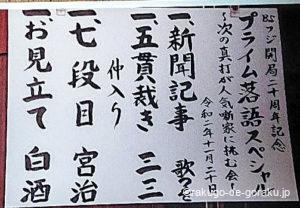 BSフジ開局二十周年記念
プライム落語スペシャル
～次の真打が人気噺家に挑む会
令和二年十一月二十
一、新聞記事 歌つを
一、五貫裁き 三三
仲入り
一、七段目 宮治
一、お見立て 白酒
©rakugo-de-goraku.jp